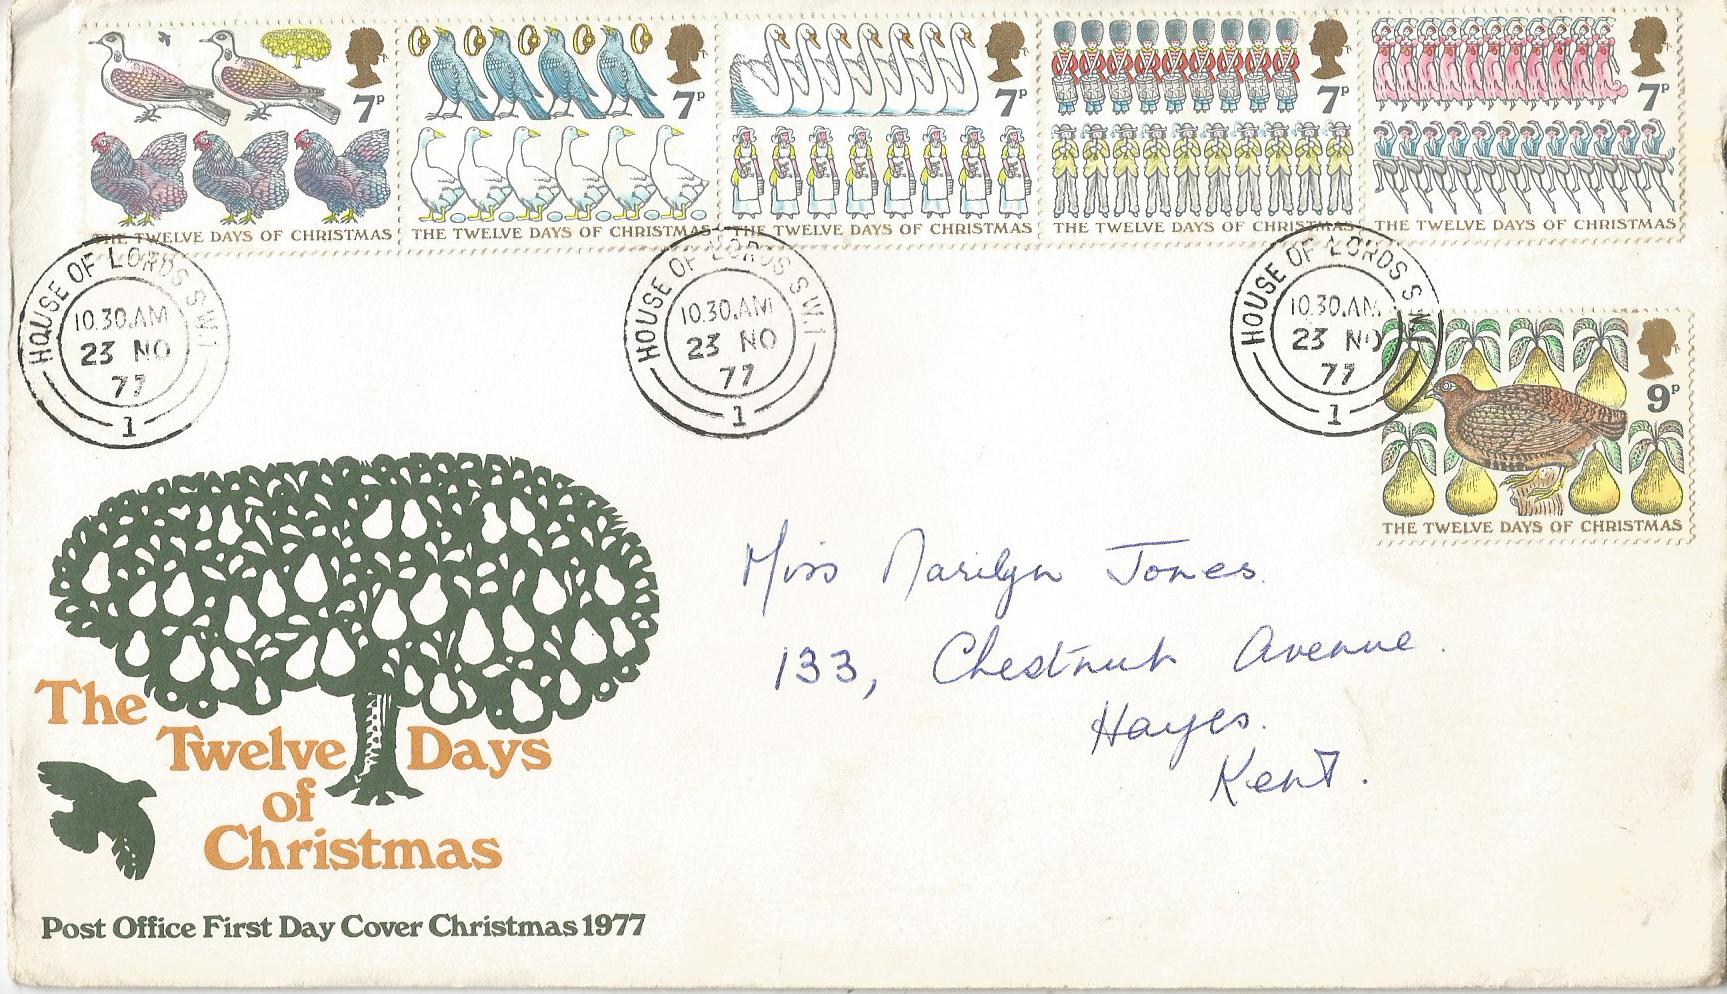 7P
7P
7P
7P
7P
THE TWELVE DAYS OF CHRISTMAS
THE TWELVE DAYS OF CHRISTMAS
THE TWELVE DAYS OF CHRISTMAS
THE TWELVE DAYS OF CHRISTMAS
THE TWELVE DAYS OF CHRISTMAS
HOUSE OF LORDS S.W.1
10.30.AM
23 NO
77
1
HOUSE OF LORDS S.W.1
10.30.AM
23 NO
77
1
HOUSE OF LORDS S.W.
10.30.AM
23 NO
77
1
9P
THE TWELVE DAYS OF CHRISTMAS
Miss Marilyn Jones.
133, Chestnut Avenue.
Hayes.
Kent.
The
Twelve Days
of
Christmas
Post Office First Day Cover Christmas 1977